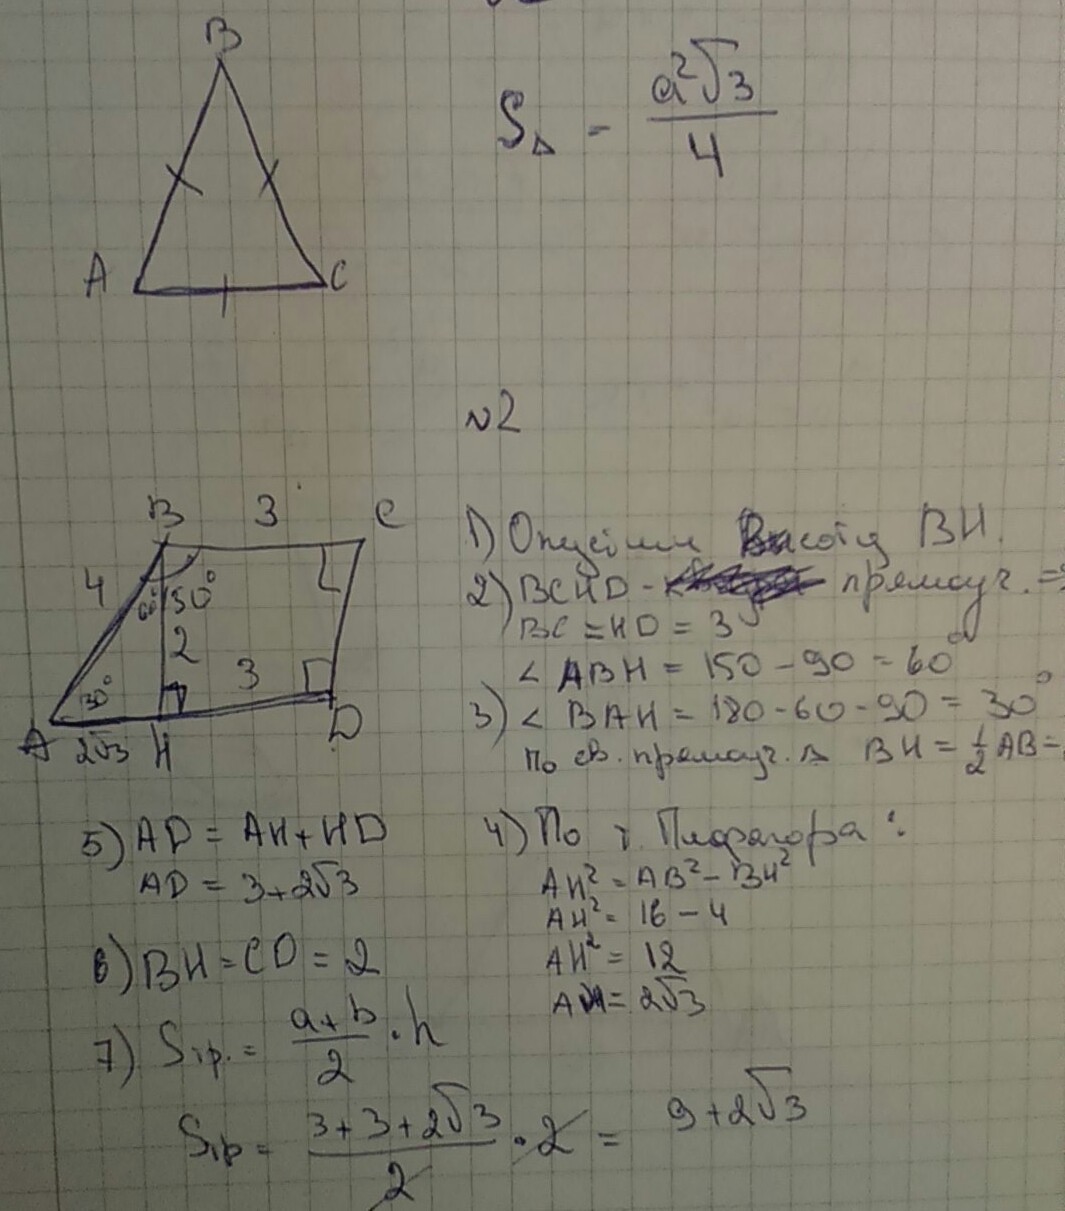 B
A
C
S△ = a²√3 / 4
№2
B 3 C
4
60° 150°
2
30° 3
A 2√3 H D
1) Опустим высоту BH.
2) BCHD - прямоуг. =>
BC = HD = 3
∠ ABH = 150 - 90 = 60°
3) ∠ BAH = 180 - 60 - 90 = 30°
По св. прямоуг. △ BH = 1/2 AB =
4) По т. Пифагора:
AH² = AB² - BH²
AH² = 16 - 4
AH² = 12
AH = 2√3
5) AD = AH + HD
AD = 3 + 2√3
6) BH = CD = 2
7) Sтр. = (a + b) / 2 · h
Sтр = (3 + 3 + 2√3) / 2 · 2 = 9 + 2√3